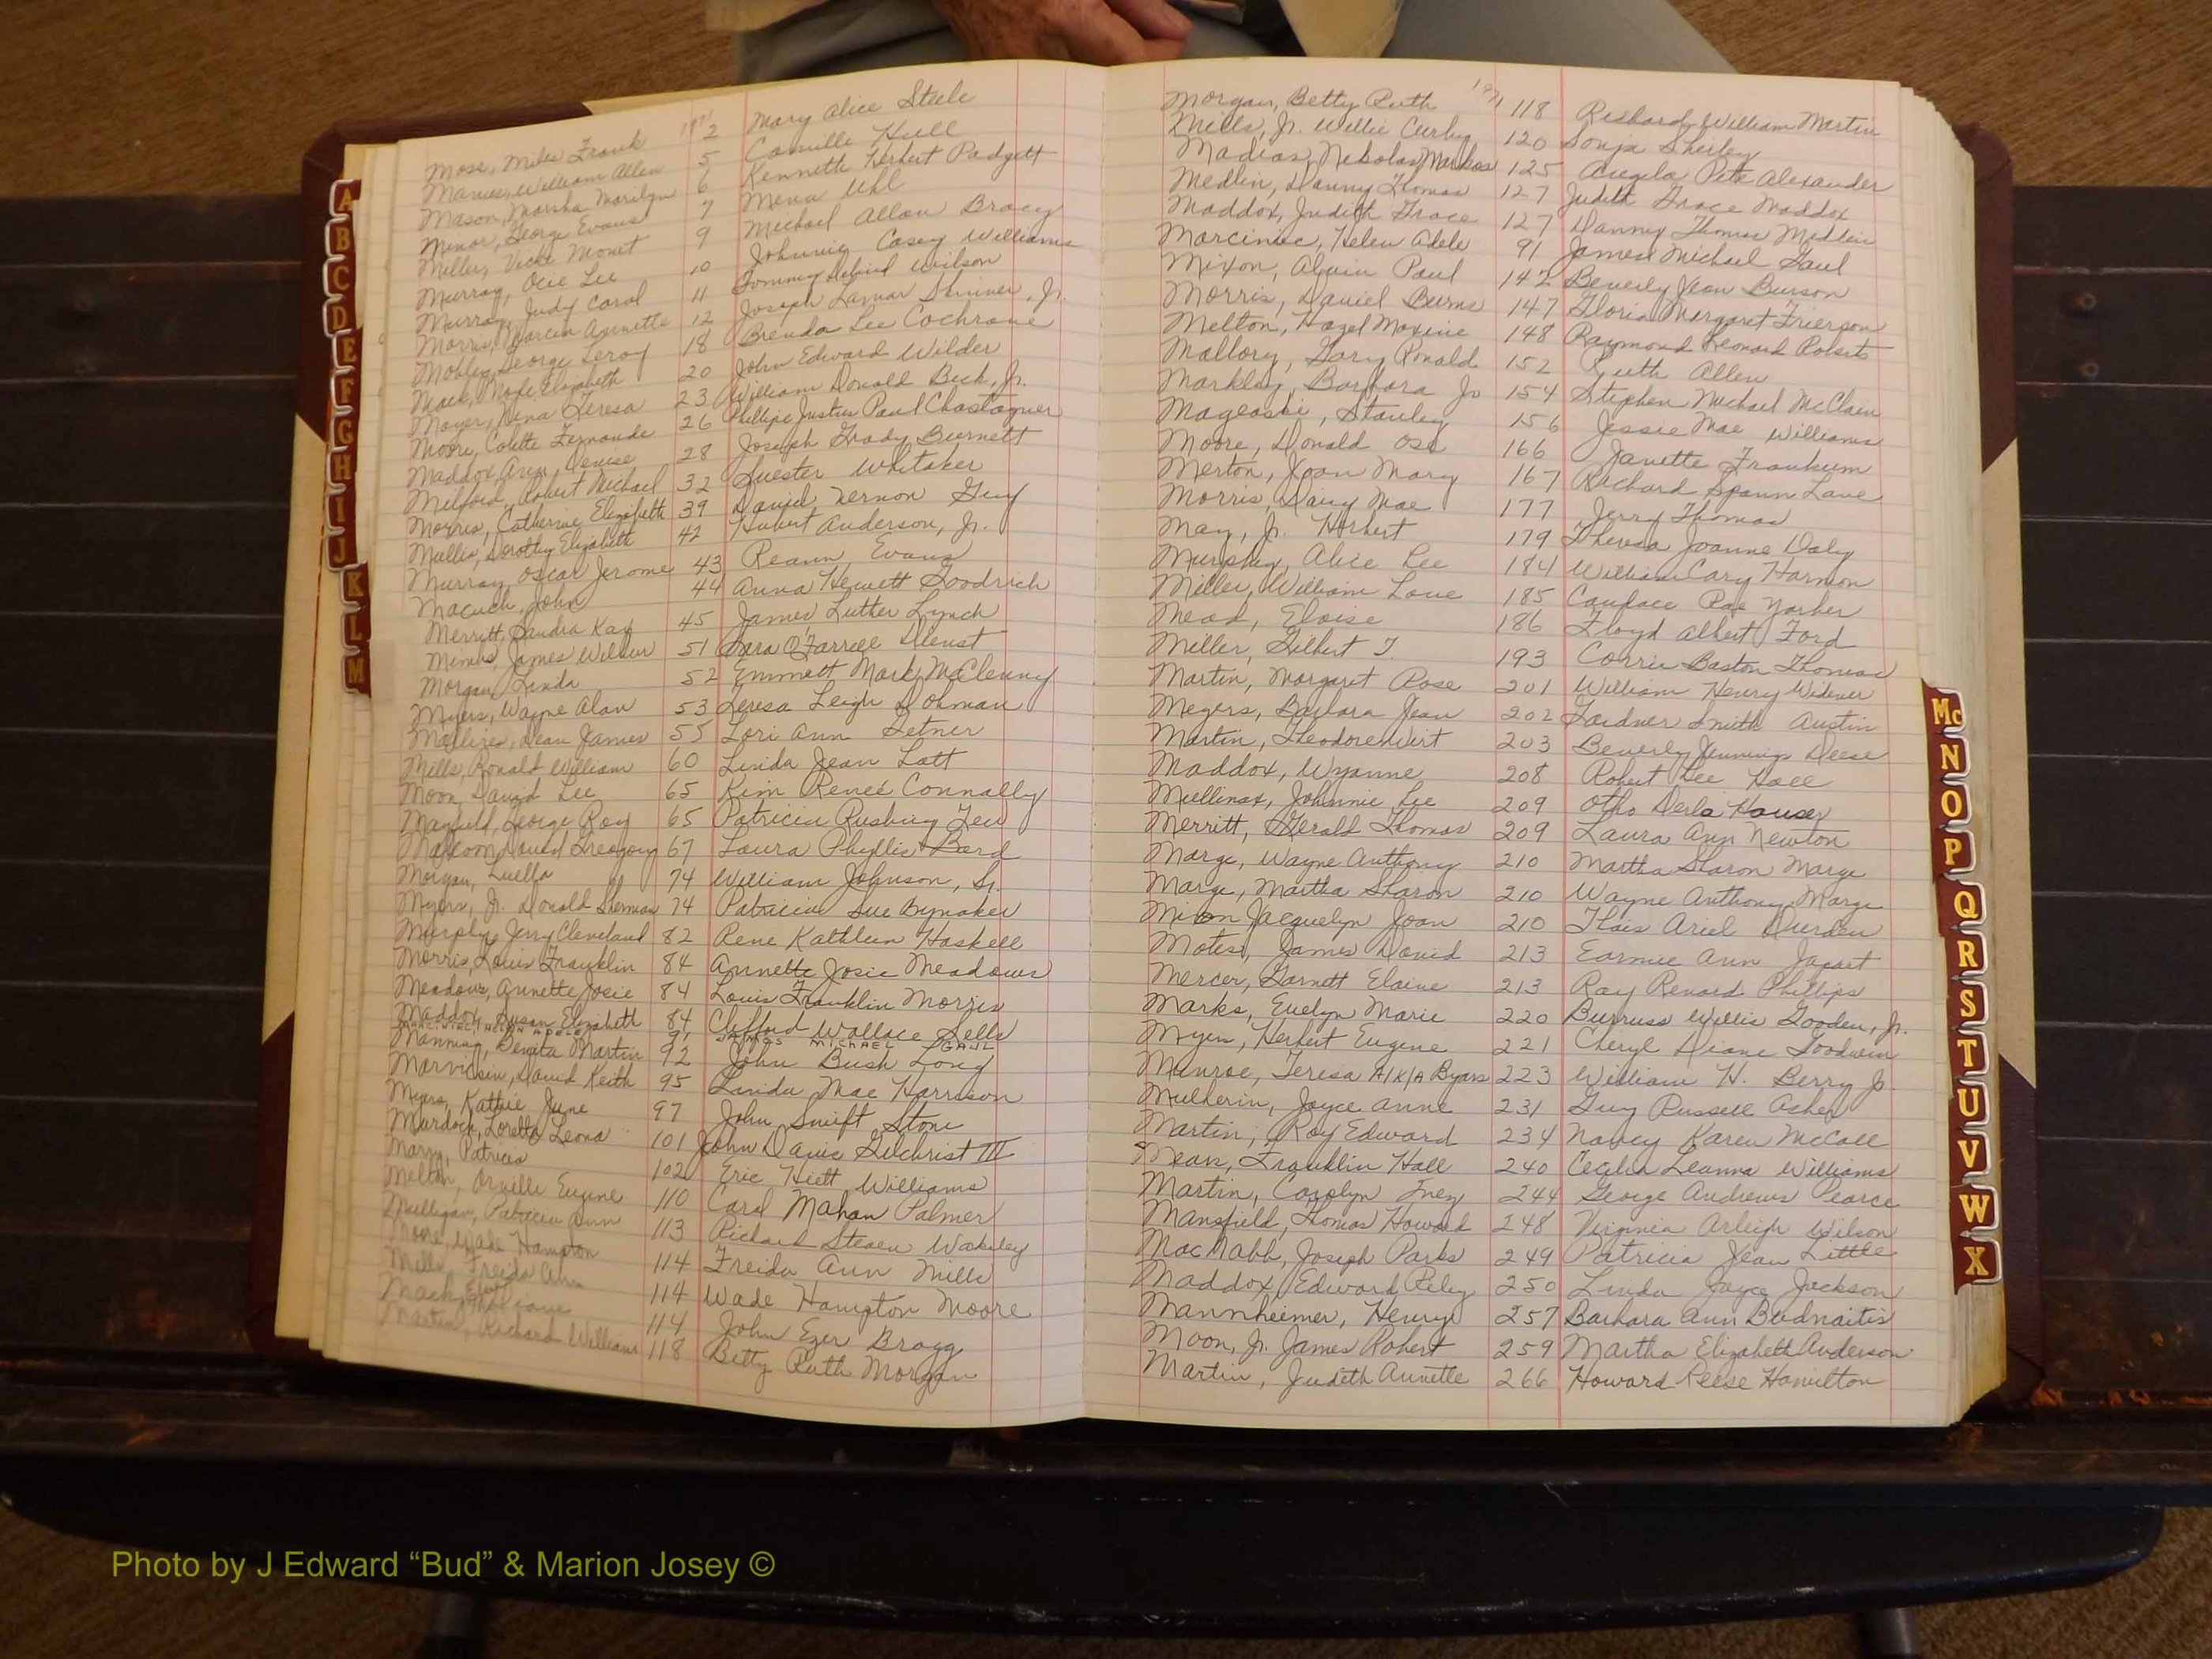 1971
Moss, Miles Frank 2 Mary Alice Steele
William Allen 5 Camille Hull
Mason, Marsha Marilyn 6 Kenneth Herbert Padgett
Minor, George Evans 7 Mena Uhl
Miller, Vicki Monet 9 Michael Allan Bracy
Murray, Ocie Lee 10 Johnnie Casey Williams
Murray, Judy Carol 11 Tommy Wilson
Morris, Marcia Annette 12 Joseph Lamar Skinner, Jr.
Mobley, George Leroy 18 Brenda Lee Cochrane
Mack, Elizabeth 20 John Edward Wilder
Moyer, Nina Teresa 23 William Donald Beck, Jr.
Moore, Colette Fernande 26 Phillipe Justin Paul Chastagner
Maddox, Ann Denise 28 Joseph Grady Burnett
Milford, Robert Michael 32 Luester Whitaker
Morris, Catherine Elizabeth 39 David Vernon Guy
Mullis, Dorothy Elizabeth 42 Hubert Anderson, Jr.
Murray, Oscar Jerome 43 Reann Evans
Macuch, John 44 Anna Hewett Goodrich
Merritt, Sandra Kay 45 James Luther Lynch
Mimbs, James Wilbur 51 Sara O'Farrell
Morgan, Linda 52 Emmett Mark McClenny
Myers, Wayne Alan 53 Teresa Leigh Dohman
Dean James 55 Lori Ann Setner
Mills, Ronald William 60 Linda Jean Lott
Moon, David Lee 65 Kim Reneé Connally
Mayfield, George Roy 65 Patricia Rushing
Malcom, David Gregory 67 Laura Phyllis Bard
Morgan, Luella 74 William Johnson, Sr.
Myers, Jr. Donald Sherman 74 Patricia Sue Bymaker
Murphy, Jerry Cleveland 82 Rene Kathleen Haskell
Morris, Louis Franklin 84 Annette Josie Meadows
Meadows, Annette Josie 84 Louis Franklin Morris
Maddox, Susan Elizabeth 84 Clifford Wallace Sells
MARCINIEC, HELEN ADELE 91 JAMES MICHAEL GAUL
Manning, Benita Martin 92 John Bush Long
David Keith 95 Linda Mae Harrison
Myers, Kathie June 97 John Swift Stone
Murdock, Loretta Leona 101 John Davis Gilchrist III
Patricia 102 Eric Hiett Williams
Melton, Orville Eugene 110 Carol Mahan Palmer
Mulligan, Patricia Ann 113 Richard Steven Wakeley
Moore, Wade Hampton 114 Freida Ann Mills
Mills, Freida Ann 114 Wade Hampton Moore
Mack, 114 John Ezer Bragg
Martin, Richard William 118 Betty Ruth Morgan
1971
Morgan, Betty Ruth 118 Richard William Martin
Mills, Jr. Willie Curley 120 Sonja Sherley
Madias, Nikolas Markos 125 Angela Pete Alexander
Medlin, Danny Thomas 127 Judith Grace Maddox
Maddox, Judith Grace 127 Danny Thomas Medlin
Marciniec, Helen Adele 91 James Michael Gaul
Mixon, Alvin Paul 142 Beverly Jean Burson
Morris, Daniel Burns 147 Gloria Margaret Frierson
Melton, Hazel Maxine 148 Raymond Leonard Roberts
Mallory, Gary Ronald 152 Ruth Allen
Markley, Barbara Jo 154 Stephen Michael McClain
Stanley 156 Jessie Mae Williams
Moore, Donald 166 Janette Frankum
Merton, Joan Mary 167 Richard Spann Lane
Morris, Daisy Mae 177 Jerry Thomas
May, Jr. Herbert 179 Theresa Joanne Daly
Murphy, Alice Lee 184 William Cary Harmon
Miller, William Love 185 Candace Rae Yarber
Mead, Eloise 186 Floyd Albert Ford
Miller, Gilbert T. 193 Corrie Baston Thomas
Martin, Margaret Rose 201 William Henry Widener
Meyers, Barbara Jean 202 Gardner Smith Austin
Martin, Theodore Wert 203 Beverly Jennings Deese
Maddox, Wyanne 208 Robert Lee Hall
Mullinax, Johnnie Lee 209 Otho Derlo Houser
Merritt, Gerald Thomas 209 Laura Ann Newton
Marge, Wayne Anthony 210 Martha Sharon Marge
Marge, Martha Sharon 210 Wayne Anthony Marge
Mixon Jacquelyn Joan 210 Thais Ariel Durden
Motes, James David 213 Ann
Mercer, Garnett Elaine 213 Ray Renard Phillips
Marks, Evelyn Marie 220 Burruss Willis Gooden, Jr.
Myers, Herbert Eugene 221 Cheryl Diane Goodwin
Munroe, Teresa A/K/A Byars 223 William H. Berry Jr
Mulherin, Joyce Anne 231 Guy Russell Asher
Martin, Roy Edward 234 Nancy Karen McCall
Mears, Franklin Hall 240 Cecilia Leanna Williams
Martin, Carolyn Inez 244 George Andrews Pearce
Mansfield, Thomas Howard 248 Virginia Arleigh Wilson
MacNabb, Joseph Parks 249 Patricia Jean Little
Maddox, Edward Riley 250 Linda Joyce Jackson
Mannheimer, Henry 257 Barbara Ann Budnaitis
Moon, Jr. James Robert 259 Martha Elizabeth Anderson
Martin, Judith Annette 266 Howard Reese Hamilton
A
B
C
D
E
F
G
H
I
J
K
L
M
Mc
N
O
P
Q
R
S
T
U
V
W
X
Photo by J Edward “Bud” & Marion Josey ©